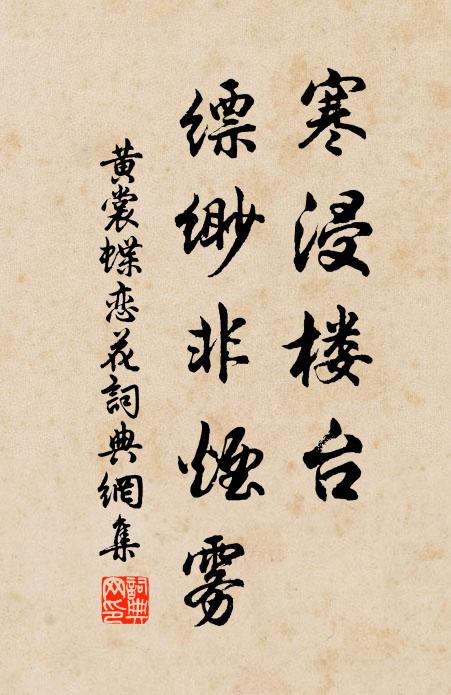 寒浸楼台
缥缈非烟雾
黄裳蝶恋花詞典網集
詞典网印